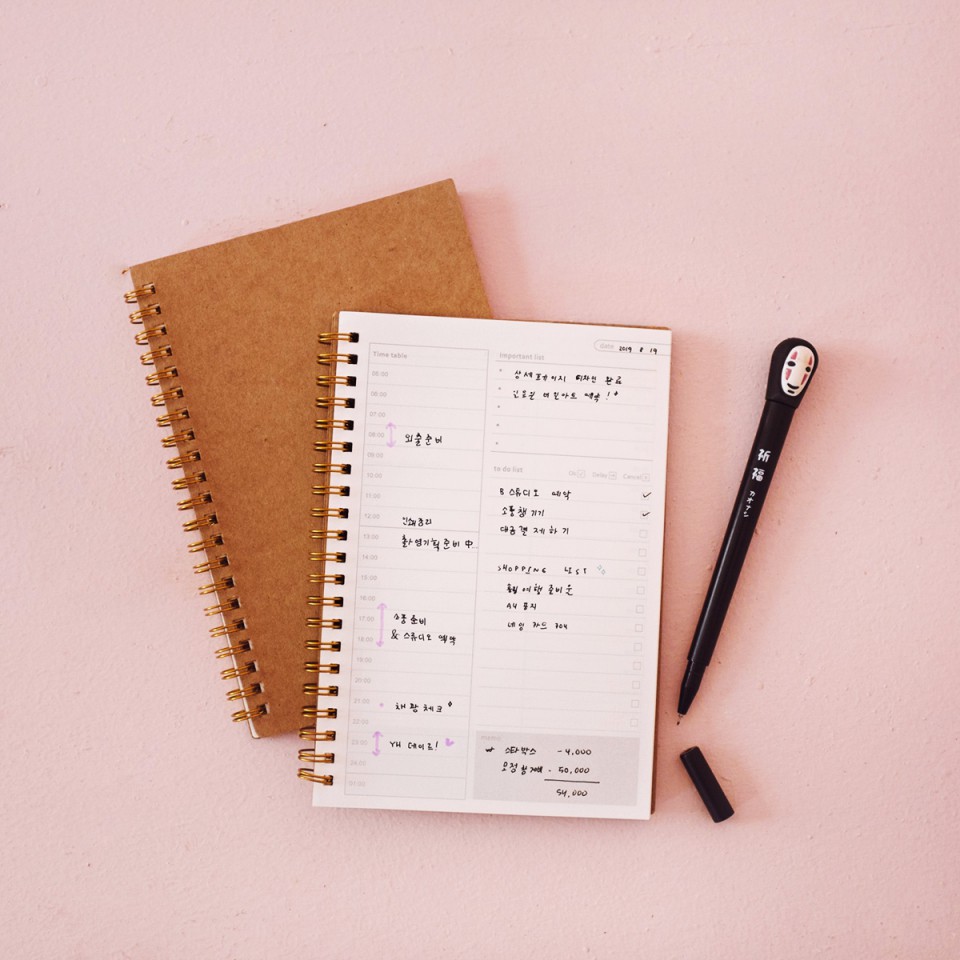 Time table
05:00
06:00
07:00
08:00
외출준비
09:00
10:00
11:00
12:00
13:00
준비 中..
14:00
15:00
16:00
17:00
준비
18:00
& 스튜디오 예약
19:00
20:00
21:00
체크
22:00
23:00
YH 데이트!
24:00
01:00
date 2019 8 19
important list
상세페이지 디자인 완료
to do list
Ok Delay Cancel
B 스튜디오 예약
소품 챙기기
대금 결제하기
SHOPPING LIST
여행 준비물
A4 용지
네임 카드
memo
스타벅스 -4,000
- 50,000
54,000
祈
福
カオナシ